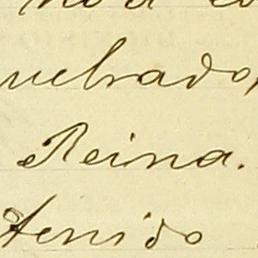 uebrado,
Reina.
tenido